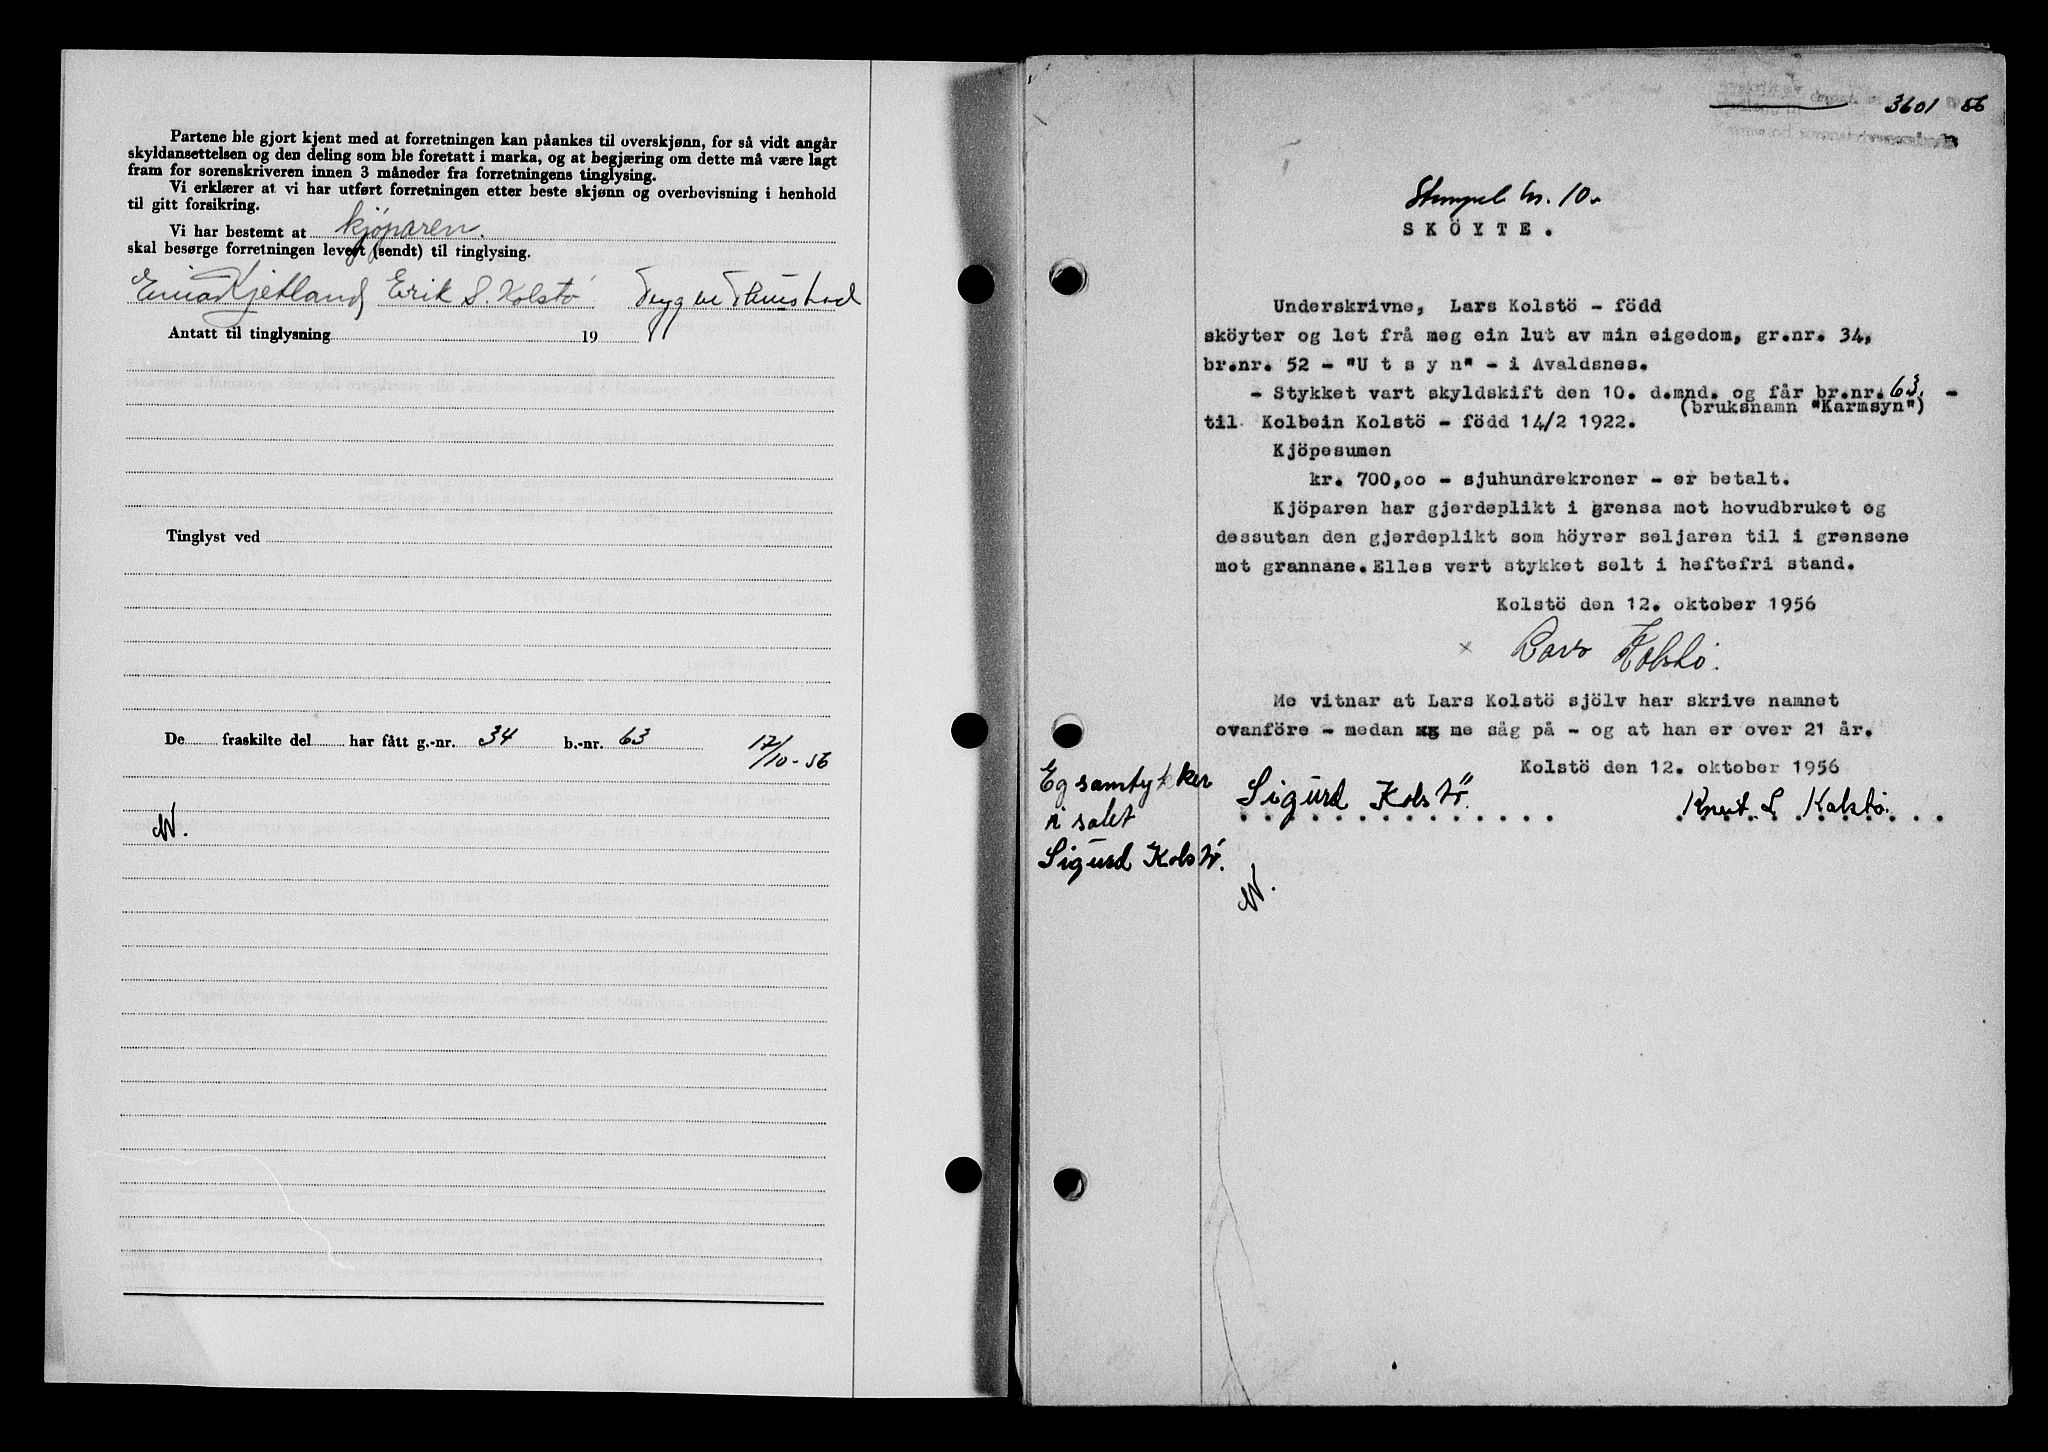 Partene ble gjort kjent med at forretningen kan påankes til overskjønn, for så vidt angår
skyldansettelsen og den deling som ble foretatt i marka, og at begjæring om dette må være lagt
fram for sorenskriveren innen 3 måneder fra forretningens tinglysing.
Vi erklærer at vi har utført forretningen etter beste skjønn og overbevisning i henhold
til gitt forsikring.
Vi har bestemt at kjøparen.
skal besørge forretningen levert (sendt) til tinglysing.
Einar Kjetland Erik S. Kolstø
Antatt til tinglysning 19
Tinglyst ved
De fraskilte del har fått g.-nr. 34 b.-nr. 63 17/10-56
N.
3601 56
Stempel kr. 10.-
SKÖYTE.
Underskrivne, Lars Kolstö - född
sköyter og let frå meg ein lut av min eigedom, gr.nr. 34,
br.nr. 52 - "U t s y n" - i Avaldsnes.
- Stykket vart skyldskift den 10. d.mnd. og får br.nr. 63. -
(bruksnamn "Karmsyn")
til Kolbein Kolstö - född 14/2 1922.
Kjöpesumen
kr. 700,oo - sjuhundrekroner - er betalt.
Kjöparen har gjerdeplikt i grensa mot hovudbruket og
dessutan den gjerdeplikt som höyrer seljaren til i grensene
mot grannane. Elles vert stykket selt i heftefri stand.
Kolstö den 12. oktober 1956
x Lars Kolstø.
Me vitnar at Lars Kolstö sjölv har skrive namnet
ovanföre - medan me såg på - og at han er over 21 år.
Kolstö den 12. oktober 1956
Sigurd Kolstö. Knut. L Kolstø.
Eg samtykker
i salet
Sigurd Kolstö.
N.